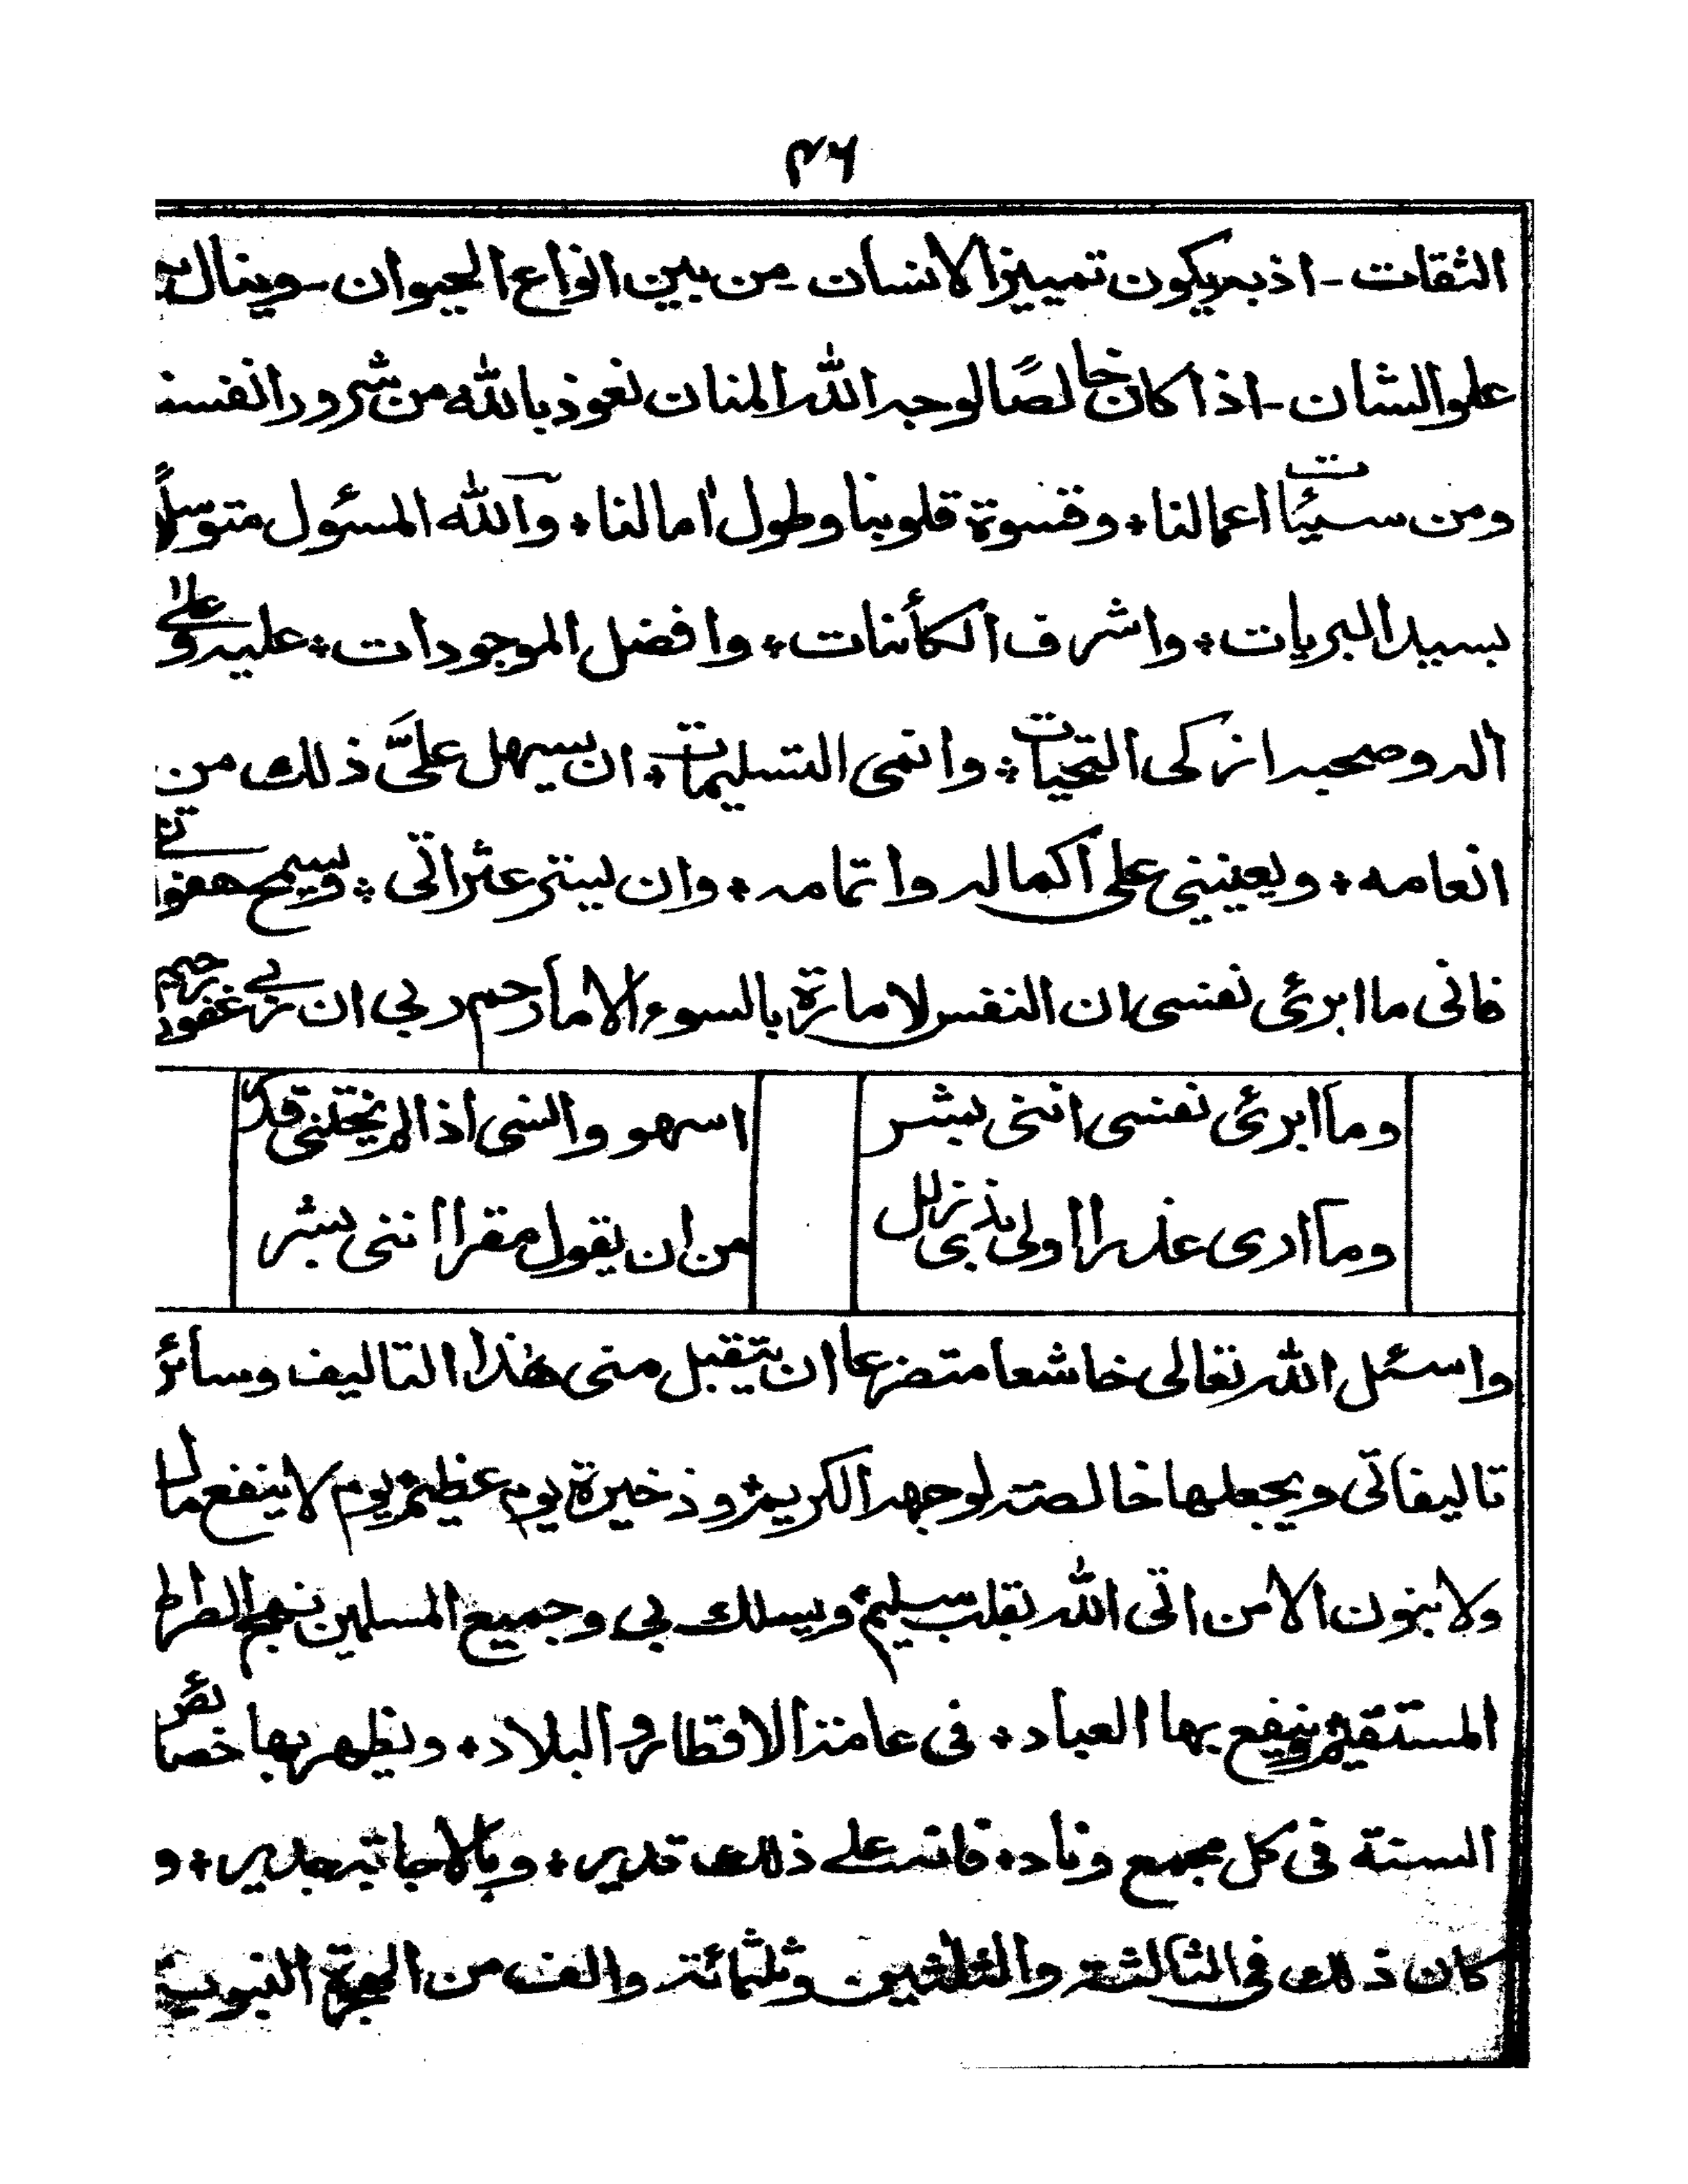 ٣٦
الثقات - اذ به يكون تمييز الانسان - من بين انواع الحيوان - وينال
علو الشان - اذا كان خالصًا لوجه الله المنان نعوذ بالله من شرور انفسنا
ومن سيئات اعمالنا ٭ وقسوة قلوبنا وطول اٰمالنا ٭ وآلله المسئول متوسلًا
بسيد البريات ٭ واشرف الكأئنات ٭ وافضل الموجودات ٭ عليه وعلى
اٰله وصحبه ازكى التحيات ٭ وانمى التسليمات ٭ ان يسهل علىَّ ذلك من
انعامه ٭ ويعينني على اكماله واتمامه ٭ وان يستر عثراتي ٭ ويسمح هفواتي
فانى ما ابرئ نفسى ان النفس لامارة بالسوء الا ما رحم ربي ان ربي غفور رحيم
وما ابرئ نفسى اننى بشر
اسهو وانسى اذا لم يحمنى قدر
وما ادرى عذرا اولى بذى زلل
من ان يقول مقرا اننى بشر
واسئل الله تعالى خاشعا متضرعا ان يتقبل منى هٰذا التاليف وسائر
تاليفاتى ويجعلها خالصة لوجهه الكريم ٭ وذخيرة يوم عظيم ٭ يوم لا ينفع مال
ولا بنون الا من اتى الله بقلب سليم ٭ ويسلك بي وجميع المسلمين نهج الصراط
المستقيم ٭ وينفع بها العباد ٭ فى عامة الاقطار والبلاد ٭ ويظهر بها خصائص
السنة فى كل مجمع وناد ٭ فانه على ذلك قدير ٭ وبالاجابة جدير ٭ و
كان ذلك فى الثالثة والثلٰثين وثلٰثمائة والف من الهجرة النبوية